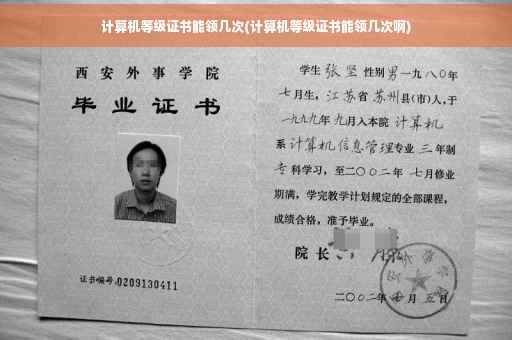 计算机等级证书能领几次(计算机等级证书能领几次啊)
西安外事学院
毕业证书
证书编号:0209130411
学生 张坚 性别男一九八〇年
七月生, 江苏省 苏州县(市)人,于
一九九九年 九月入本院 计算机
系 计算机信息管理专业 三 年制
专科学习, 至二〇〇二年 七月修业
期满, 学完教学计划规定的全部课程,
成绩合格, 准予毕业。
院长
二〇〇二年 月 五日